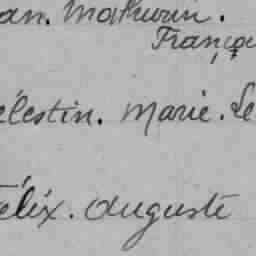 an. Mathurin.
Franço
élestin. Marie. Le
élix. Auguste